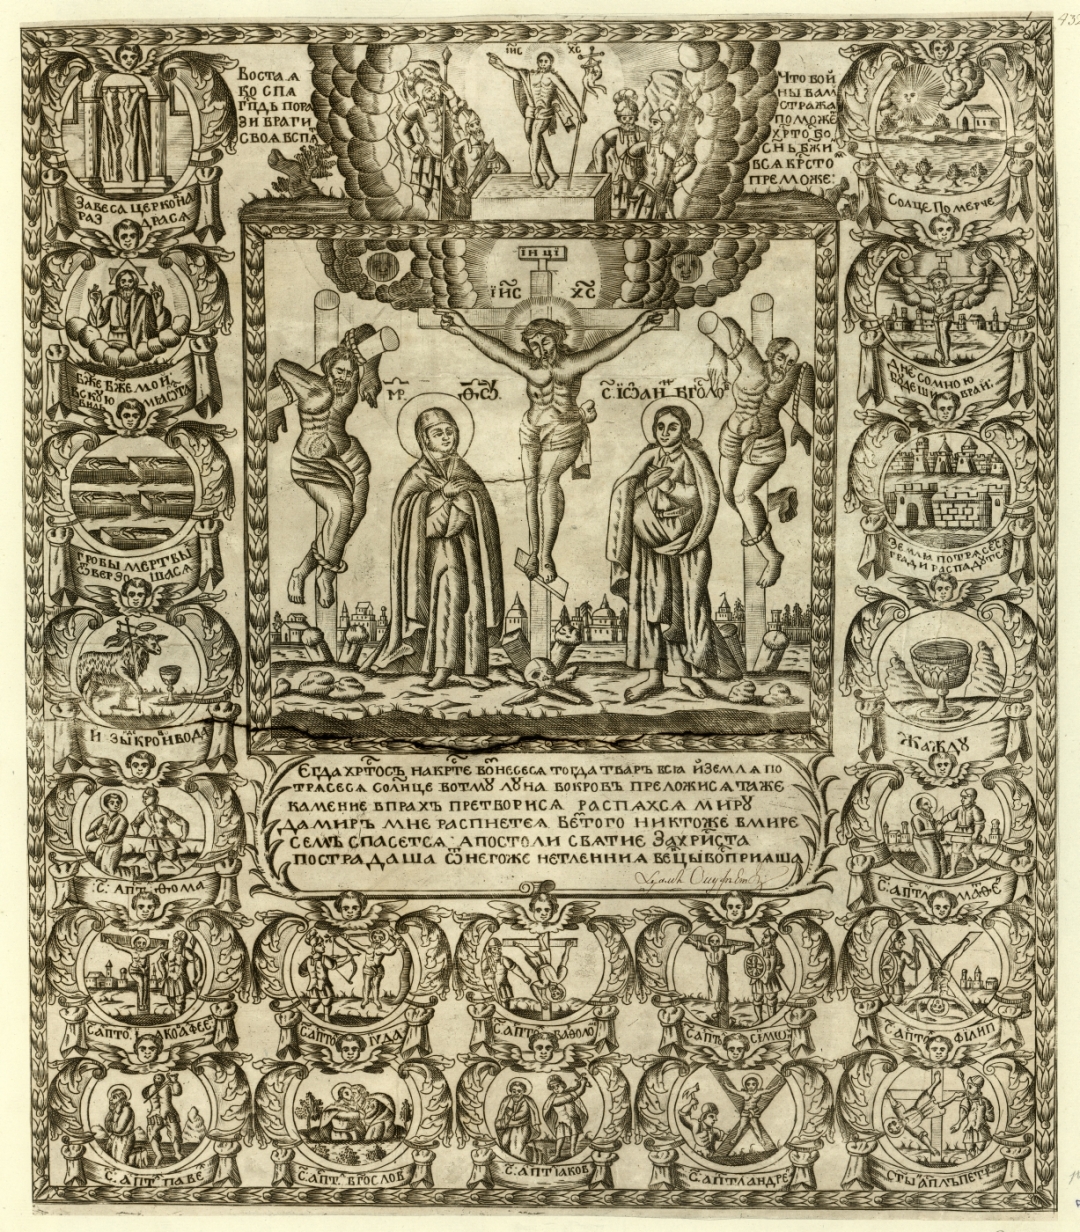 432
І҃ИС ХС҃
Воста я
ко спа
Гпдь пора
зи враги
своя вспѧ
Что вой
ны вам
стража
положе
хрто бо
снь бжи
вся крсто
преложе:
Завеса церкона
раз драся
Солце Померче
ІНЦІ
І҃ИС ХС҃
М҃Р. ѲУ҃.
С҃. ІѠАН Бг҃оло
Бже Бже мой
вскую мя
Дне сомною
будеши враи:
Гробы мертвы
ѿверзо шася
Земли потрясеся
гради распадутся
И зы крови вода
Жажду
Егда хрт҃осъ на кр҃те вознесеся тогда тваръ вся й земля по
трясеся солнце вотму луна вокровъ преложися таже
камение впрахъ претворися распяхся миру
да миръ мне распнетея бе того никтоже в мире
семъ спасется: апостоли святие за христа
пострадаша ѿнегоже нетленния вецы воприяша
С: Апт Ѳома
С: Апл Маѳе
С апто. Иако Алѳее
С апто Іуда
С апт Варѳоло
С апт Сімѡ
С апто Філип
С: апт Паве
С. апт. Бгослов
С: апт Іаков
С: апл Андре
Сты аплъ Петръ